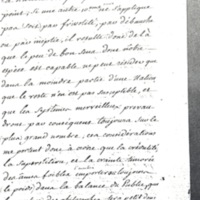 point; si une autre s'applique
pas soit par frivolité, par débauche
ou par ineptie, il resulte donc de là
que le peu de bon sens dont notre
espèce est capable, ne peut résider que
dans la moindre partie d'une Nation
que le reste n'en est pas susceptible, et
que les systèmes merveilleux prévau-
dront par conséquent toujours sur le
plus grand nombre, ces considérations
me portent donc à croire que la crédulité,
la superstition, et la crainte timorée
des ames foibles emportera toujours
le poids dans la balance du Public, que